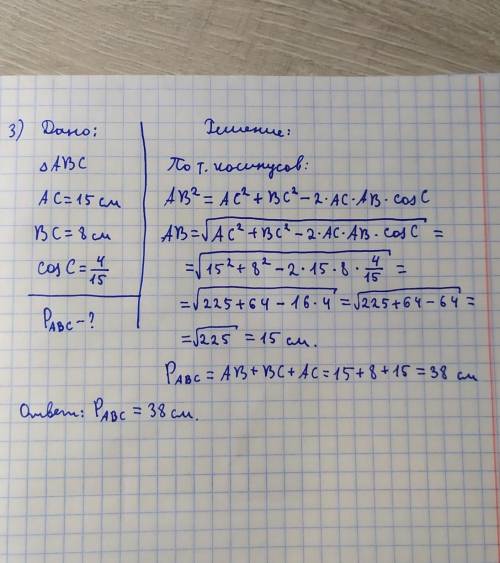 3) Дано:
△ABC
AC = 15 см
BC = 8 см
cos C = 4/15
P_ABC - ?
Решение:
По т. косинусов:
AB² = AC² + BC² - 2·AC·AB·cos C
AB = √(AC² + BC² - 2·AC·AB·cos C) =
= √(15² + 8² - 2·15·8·4/15) =
= √(225 + 64 - 16·4) = √(225 + 64 - 64) =
= √225 = 15 см.
P_ABC = AB + BC + AC = 15 + 8 + 15 = 38 см
Ответ: P_ABC = 38 см.